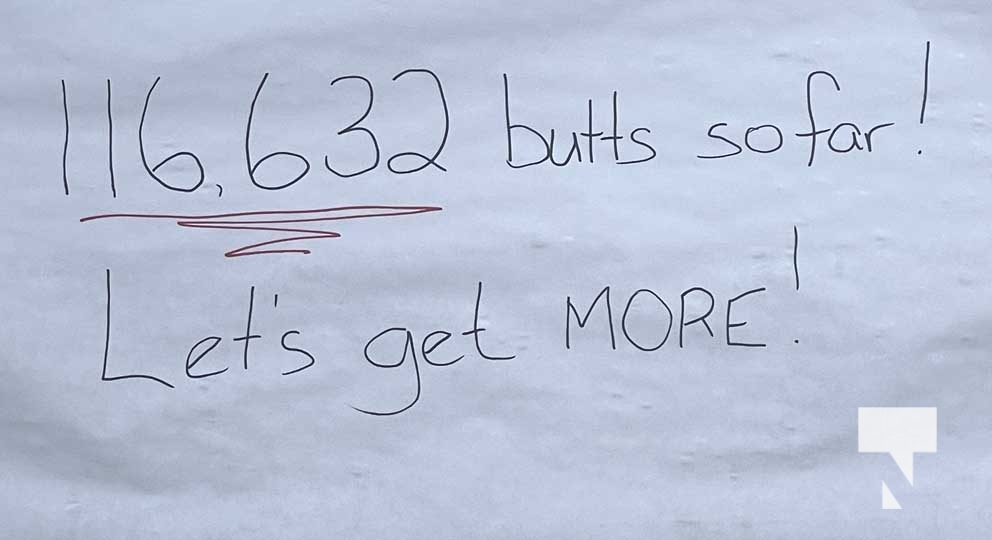 116,632 butts so far!
Let's get MORE!